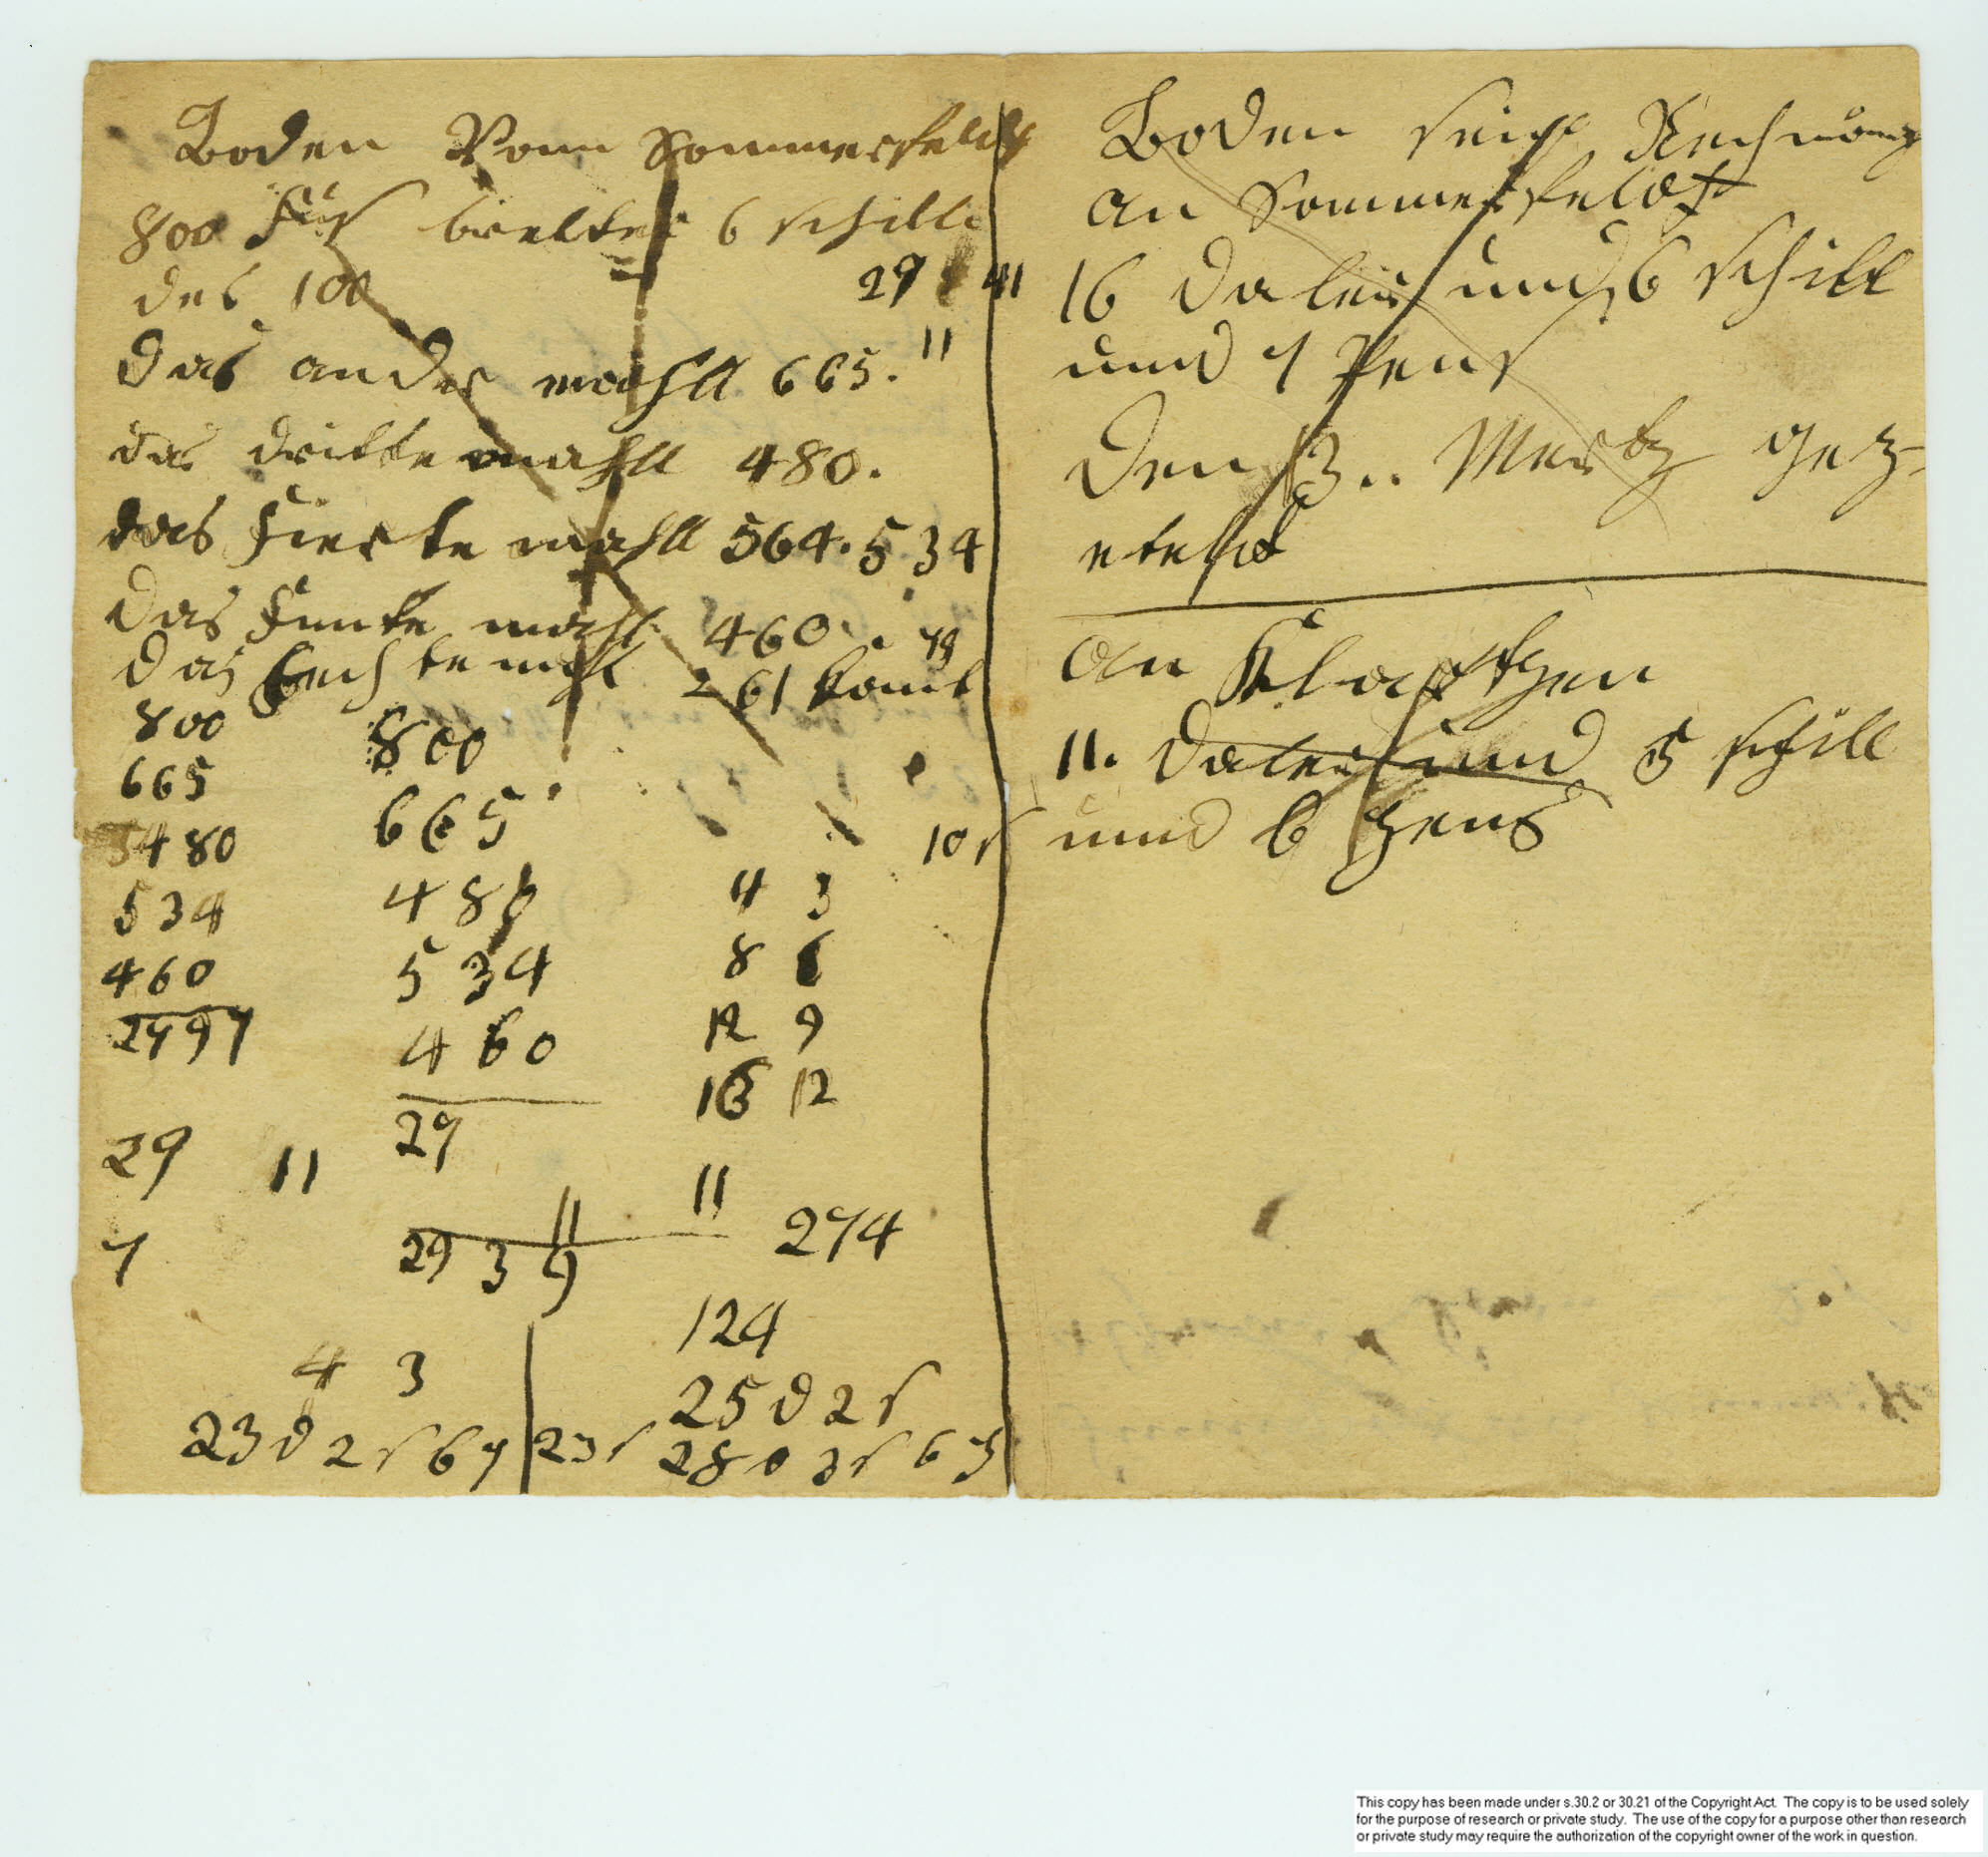 Boden Vom Sommerfeldt
800 Fus bretter 6 schill
des 100 29 11
das ander mahll 665. 11
das dritte mahll 480.
das Fierte mahll 564. 534
das Funte mahl 460
das sechste mahl 261
800 800
665 665
480 480
534 534
460 460
2997 29
10 s
4 3
8 6
12 9
16 12
29 11
11 11
7 29 3 9 274
124
4 3
25 d 2 s
23 d 2 s 6 7 23 s 28 d 3 s 6 7
Boden sein Rechnung
an Sommerfeldt
16 daler und 6 schill
und 7 Pens
den 3.. Mertz gez-
etelt
an
11. daler und 5 schill
und 6 pens
This copy has been made under s.30.2 or 30.21 of the Copyright Act. The copy is to be used solely
for the purpose of research or private study. The use of the copy for a purpose other than research
or private study may require the authorization of the copyright owner of the work in question.